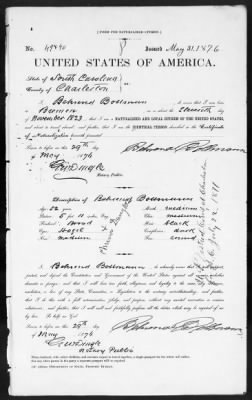 [FORM FOR NATURALIZED CITIZEN.]
No. 49890 Issued May 31, 1876
UNITED STATES OF AMERICA.
State of South Carolina
County of Charleston
I, Behrend Bollmann, do swear that I was born
in Bremen on or about the Eleventh day
of November 1823; that I am a NATURALIZED AND LOYAL CITIZEN OF THE UNITED STATES,
and about to travel abroad; and further, that I am the IDENTICAL PERSON described in the Certificate
of Naturalization herewith presented.
Sworn to before me this 29th day
of May 1876
Notary Public.
Description of Behrend Bollmann
Age: 52 years
Stature: 5 feet 11 inches
Forehead: Broad
Eyes: Hazel
Nose: Medium
Mouth: Medium
Chin: medium
Hair: black
Complexion: dark
Face: round
I, Behrend Bollmann, do solemnly swear that I will support,
protect, and defend the Constitution and Government of the United States against all enemies, whether
domestic or foreign; and that I will bear true faith, allegiance, and loyalty to the same, any ordinance,
resolution, or law of any State, Convention, or Legislature to the contrary notwithstanding; and further,
that I do this with a full determination, pledge, and purpose, without any mental reservation or evasion
whatsoever; and, further, that I will well and faithfully perform all the duties which may be required of me
by law. So help me God.
Sworn to before me this 29th day
of May 1876
Notary Public